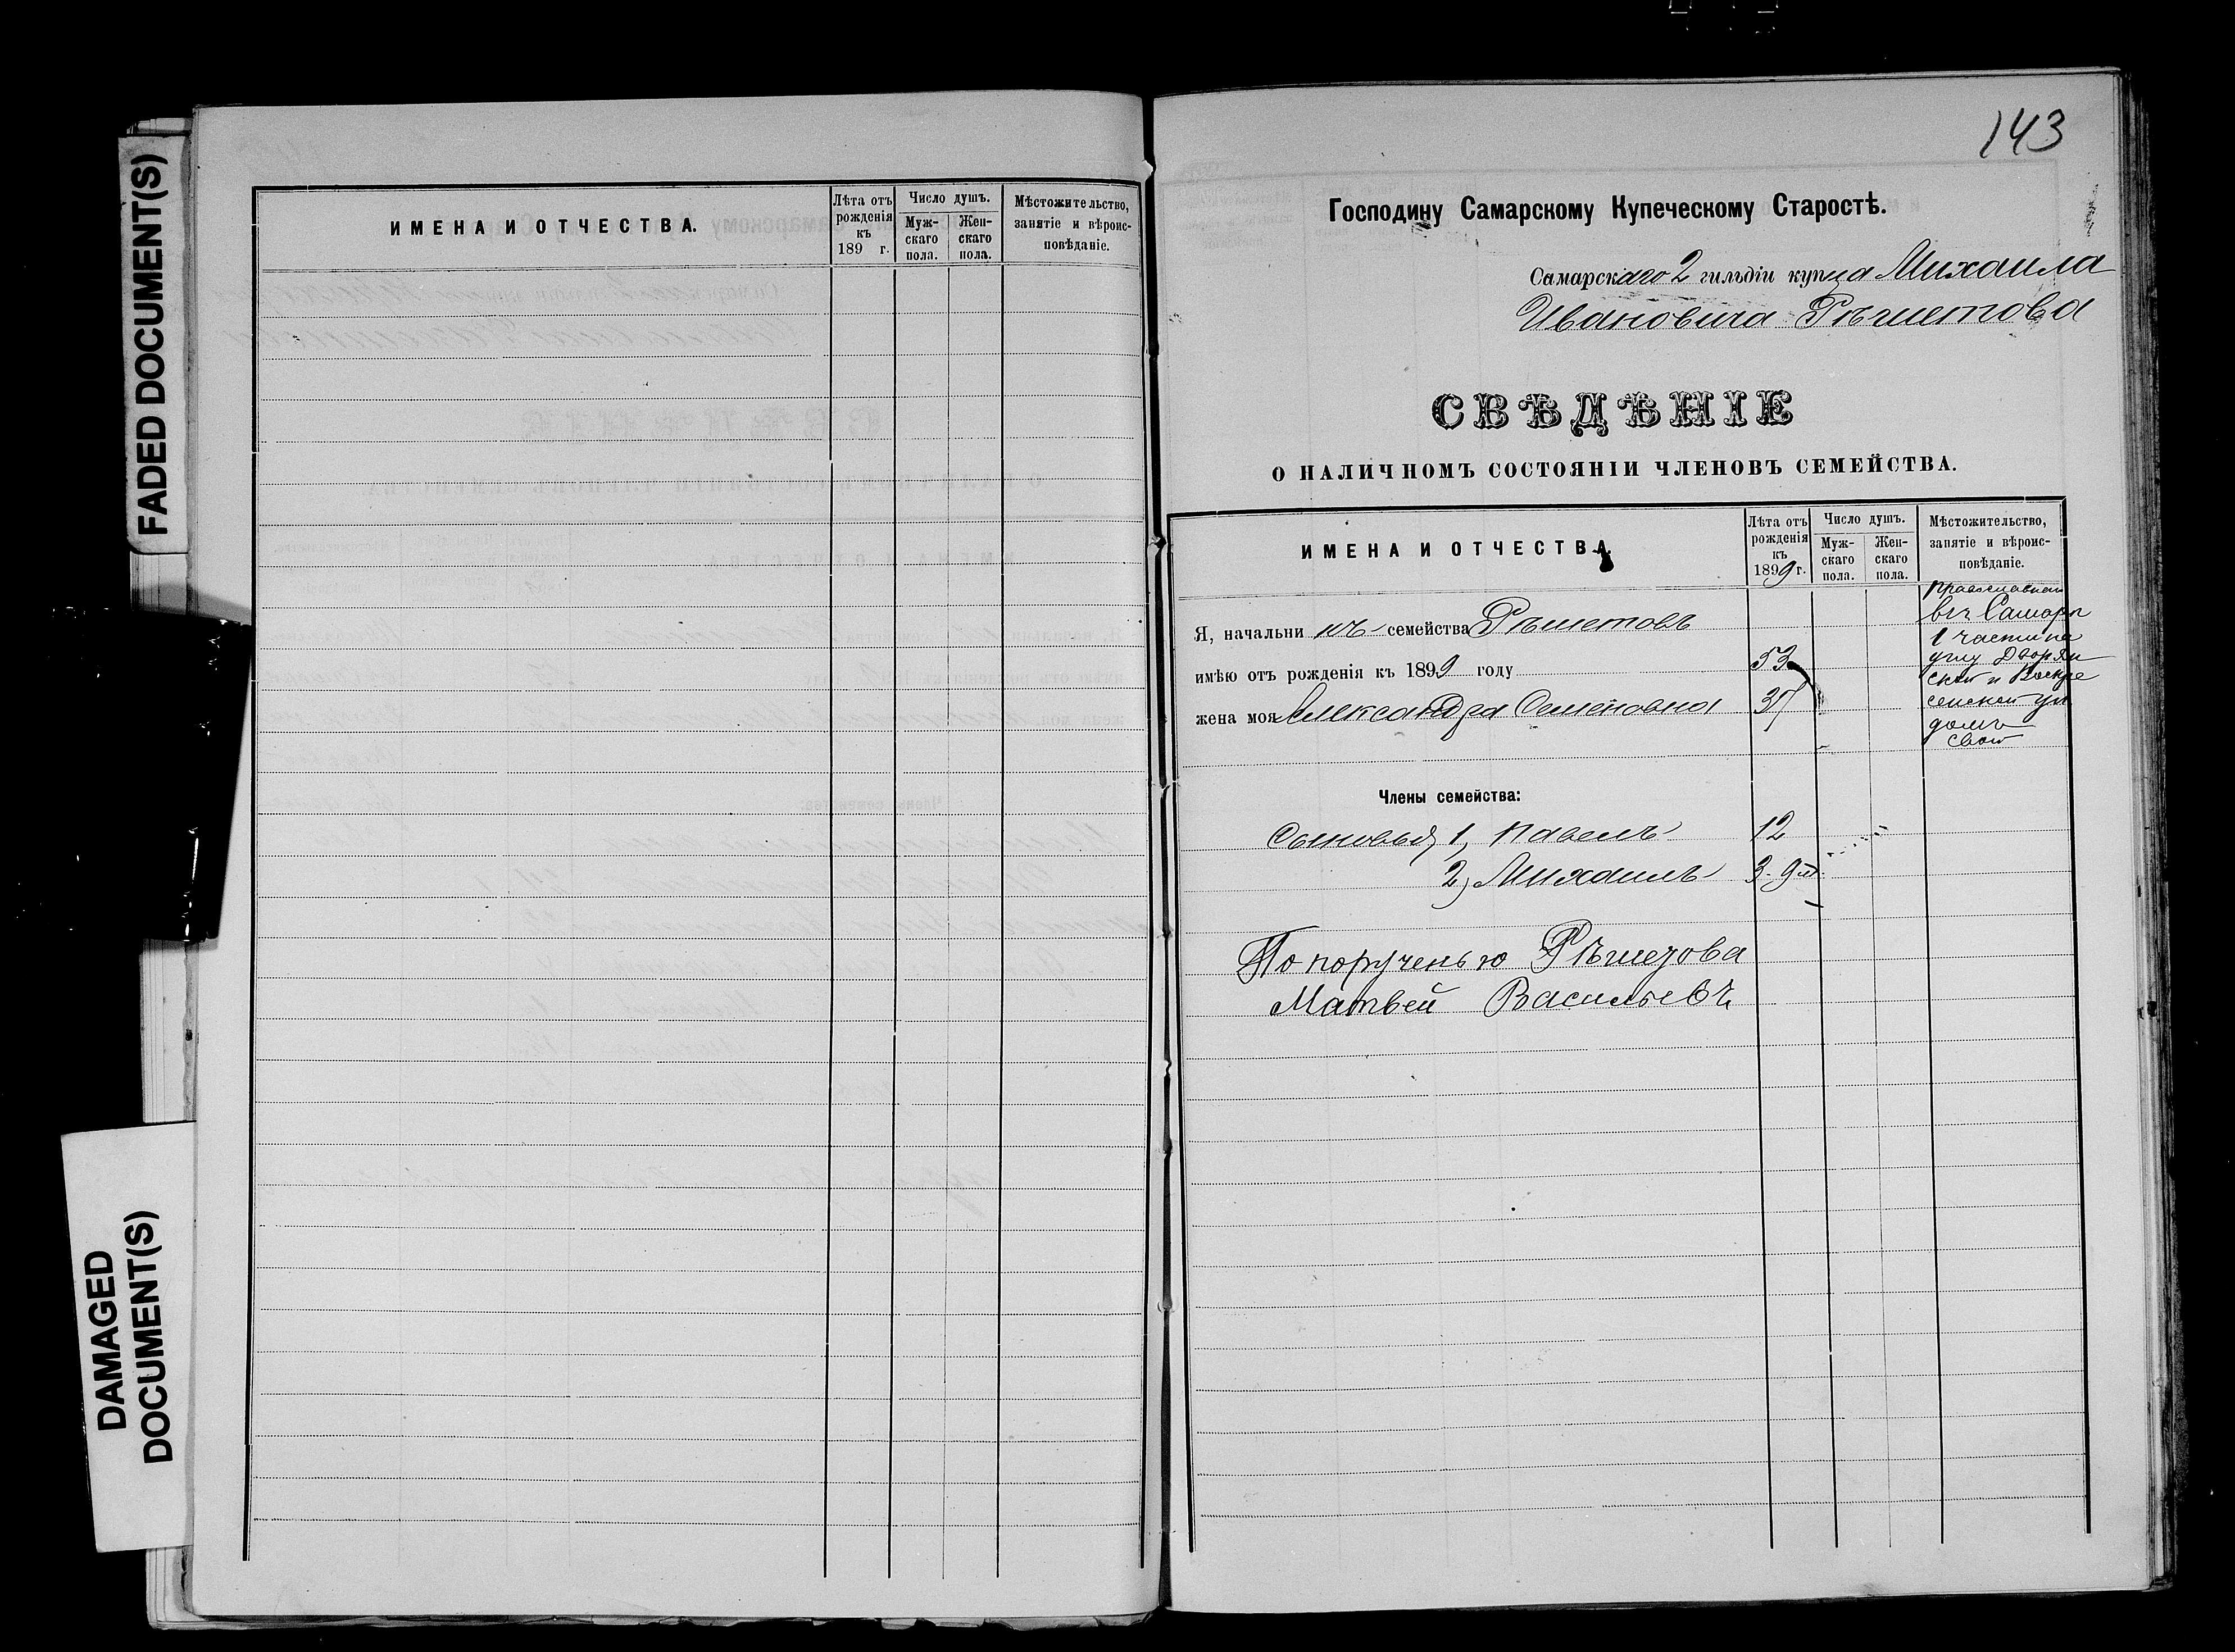 FADED DOCUMENT(S)
DAMAGED
DOCUMENT(S)
ИМЕНА И ОТЧЕСТВА.
Лѣта отъ
рожденія
къ
189 г.
Число душъ.
Муж-
скаго
пола.
Жен-
скаго
пола.
Мѣстожительство,
занятіе и вѣроис-
повѣданіе.
143
Господину Самарскому Купеческому Старостѣ.
Самарскаго 2 гильдіи купца Михаила
Ивановича Рѣшетова
СВѢДѢНІЕ
О НАЛИЧНОМЪ СОСТОЯНІИ ЧЛЕНОВЪ СЕМЕЙСТВА.
ИМЕНА И ОТЧЕСТВА.
Лѣта отъ
рожденія
къ
1899 г.
Число душъ.
Муж-
скаго
пола.
Жен-
скаго
пола.
Мѣстожительство,
занятіе и вѣроис-
повѣданіе.
Я, начальникъ семейства Рѣшетовъ
имѣю отъ рожденія къ 1899 году 53
жена моя Александра Семеновна
въ Самарѣ
1 части на
углу Дворян
ской и Воскре
сенской ул
домъ
свой
Члены семейства:
Сыновья, 1, Павелъ 12
2, Михаилъ 3
По порученью Рѣшетова
Матвей Васильевъ